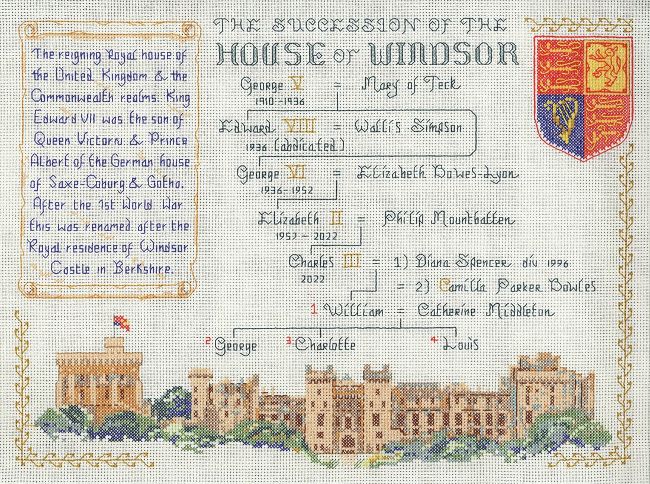 THE SUCCESSION OF THE
HOUSE OF WINDSOR
The reigning Royal house of
the United Kingdom & the
Commonwealth realms. King
Edward VII was the son of
Queen Victoria & Prince
Albert of the German house
of Saxe-Coburg & Gotha.
After the 1st World War
this was renamed after the
Royal residence of Windsor
Castle in Berkshire.
George V = Mary of Teck
1910-1936
Edward VIII = Wallis Simpson
1936 (abdicated)
George VI = Elizabeth Bowes-Lyon
1936-1952
Elizabeth II = Philip Mountbatten
1952 - 2022
Charles III = 1) Diana Spencer div 1996
2022
= 2) Camilla Parker Bowles
1 William = Catherine Middleton
2 George 3 Charlotte 4 Louis